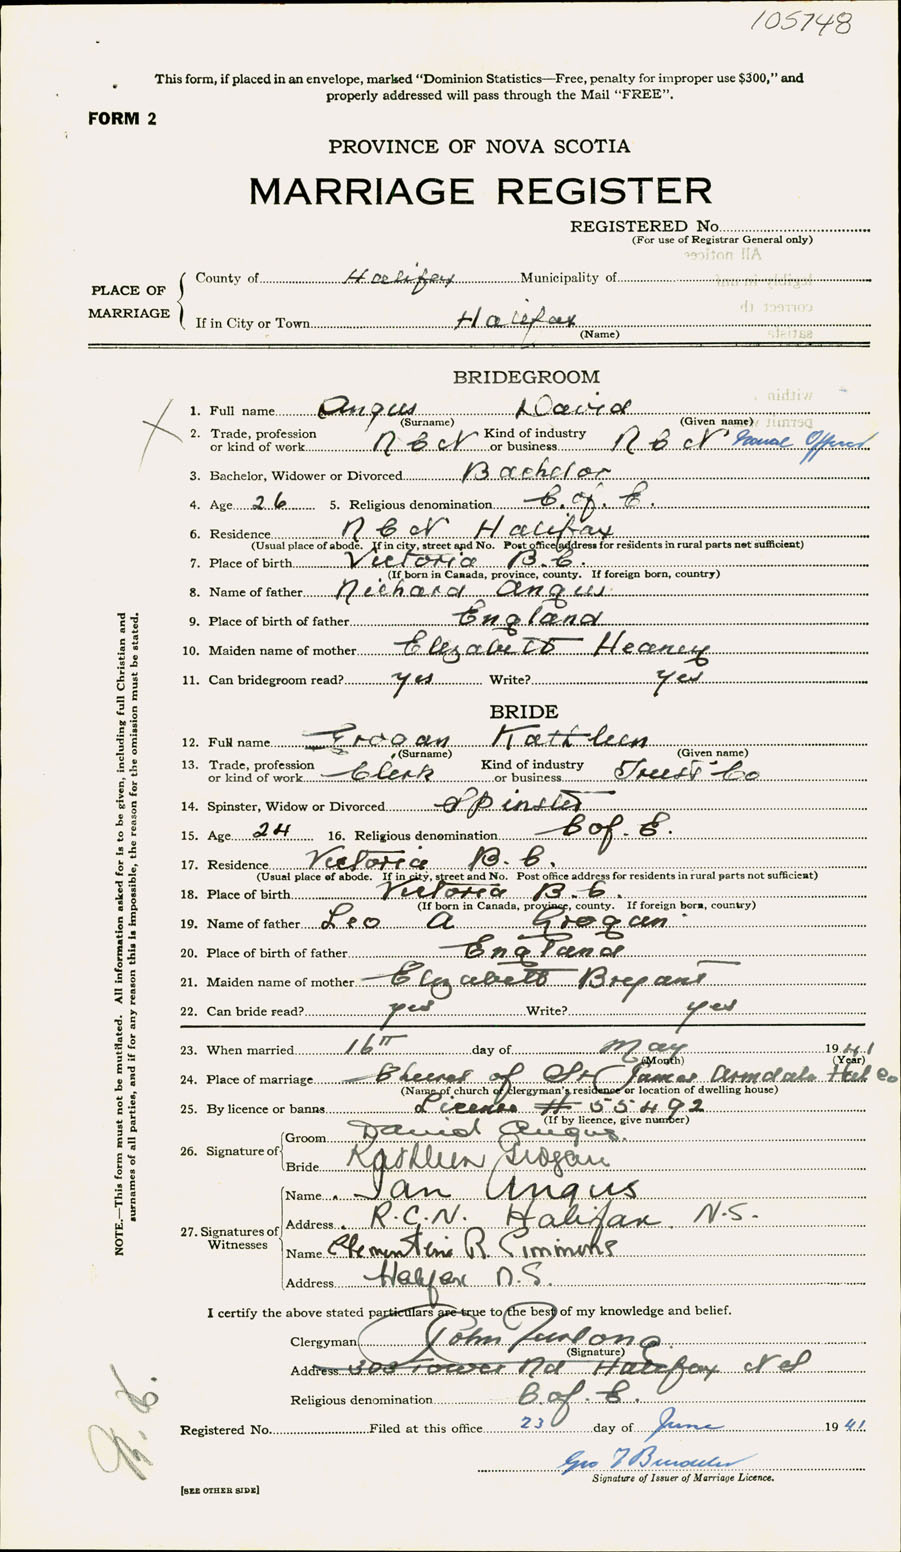 105748
This form, if placed in an envelope, marked "Dominion Statistics—Free, penalty for improper use $300," and
properly addressed will pass through the Mail "FREE".
FORM 2
PROVINCE OF NOVA SCOTIA
MARRIAGE REGISTER
REGISTERED No.
(For use of Registrar General only)
PLACE OF MARRIAGE
County of Halifax Municipality of
If in City or Town Halifax
(Name)
BRIDEGROOM
1. Full name Angus David
(Surname) (Given name)
2. Trade, profession or kind of work R C N Kind of industry or business R C N Naval Officer
3. Bachelor, Widower or Divorced Bachelor
4. Age 26 5. Religious denomination C. of. E.
6. Residence R C N Halifax
(Usual place of abode. If in city, street and No. Post office address for residents in rural parts not sufficient)
7. Place of birth Victoria B.C.
(If born in Canada, province, county. If foreign born, country)
8. Name of father Richard Angus
9. Place of birth of father England
10. Maiden name of mother Elizabeth Heaney
11. Can bridegroom read? yes Write? yes
BRIDE
12. Full name Grogan Kathleen
(Surname) (Given name)
13. Trade, profession or kind of work Clerk Kind of industry or business Trust Co
14. Spinster, Widow or Divorced Spinster
15. Age 24 16. Religious denomination C of. E.
17. Residence Victoria B.C.
(Usual place of abode. If in city, street and No. Post office address for residents in rural parts not sufficient)
18. Place of birth Victoria B.C.
(If born in Canada, province, county. If foreign born, country)
19. Name of father Leo A Grogan
20. Place of birth of father England
21. Maiden name of mother Elizabeth Bryant
22. Can bride read? yes Write? yes
23. When married 16th day of May 1941
(Month) (Year)
24. Place of marriage Church of St James Armdale Hal Co
(Name of church or clergyman's residence or location of dwelling house)
25. By licence or banns License # 55492
(If by licence, give number)
26. Signature of
Groom David Angus.
Bride Kathleen Grogan
27. Signatures of Witnesses
Name Ian Angus
Address R.C.N. Halifax N.S.
Name Clementine R. Simmons
Address Halifax N.S.
I certify the above stated particulars are true to the best of my knowledge and belief.
Clergyman John Furlong
(Signature)
Address 303 Tower Rd Halifax N S
Religious denomination C. of. E.
Registered No. Filed at this office 23 day of June 1941
Geo
Signature of Issuer of Marriage Licence.
[SEE OTHER SIDE]
NOTE.—This form must not be mutilated. All information asked for is to be given, including full Christian and
surnames of all parties, and if for any reason this is impossible, the reason for the omission must be stated.